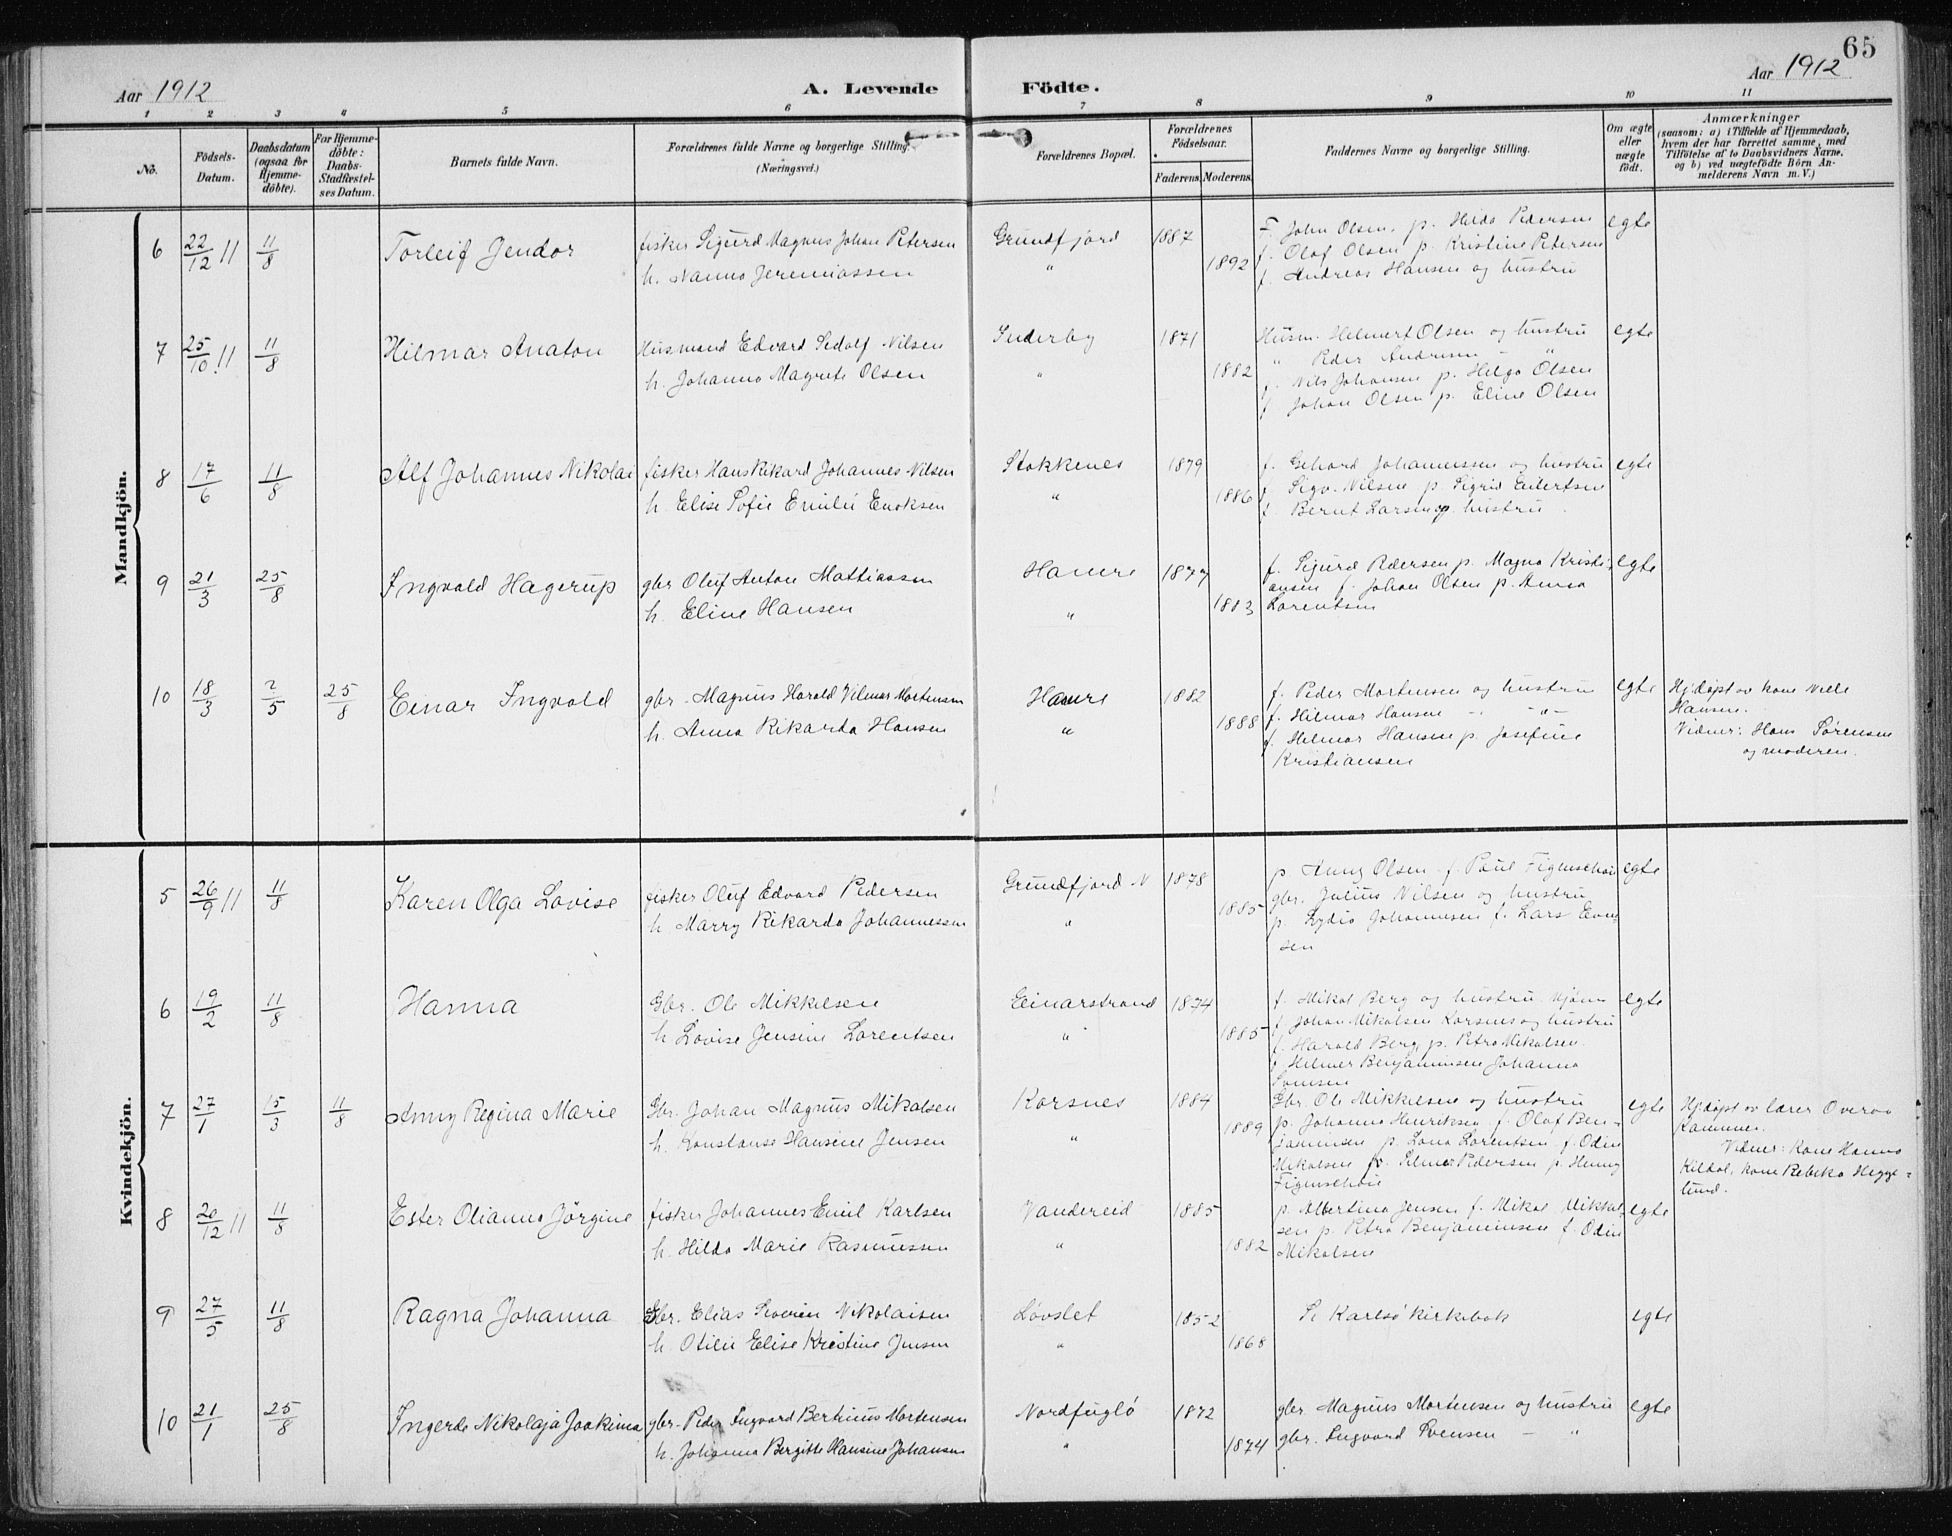 65
Aar 1912
A. Levende
Födte.
Aar 1912
1 2 3 4 5 6 7 8 9 10 11
No.
Födsels-Datum.
Daabsdatum (ogsaa for Hjemme-döbte).
For Hjemme-döbte: Daabs-Stadfestel-ses Datum.
Barnets fulde Navn.
Forældrenes fulde Navne og borgerlige Stilling.
(Næringsvei.)
Forældrenes Bopæl.
Forældrenes Födselsaar.
Faderens. Moderens.
Faddernes Navne og borgerlige Stilling.
Om ægte eller nægte födt.
Anmærkninger
(saasom: a) i Tilfælde af Hjemmedaab,
hvem der har forrettet samme, med
Tilföielse af to Daabsvidners Navne,
og b) ved nægtefödte Börn An-
melderens Navn m. V.)
Mandkjön.
6 22/12 11 11/8 Torleif Jendor fisker Sigurd Magnus Johan Petersen Grundfjord 1887 F. John Olsen, p. Hilda Pedersen egte
h. Nanna Jeremiassen " 1892 f. Olaf Olsen p. Kristine Petersen
f. Andreas Hansen og hustru
7 25/10 11 11/8 Hilmar Anaton Husmand Edvard Sedolf Nilsen Inderby 1871 Husm. Helmert Olsen og hustru egte
" Peder Andresen - "
h. Johanna Magrete Olsen " 1882 f. Nils Johansen p. Helga Olsen
f. Johan Olsen p. Eline Olsen
8 17/6 11/8 Alf Johannes Nikolai fisker Hans Rikard Johannes Nilsen Stokkenes 1879 f. Gehard Johannessen og hustru egte
h. Elise Sofie Emilie Enoksen " 1886 f. Sigv. Nilsen p. Sigrid Eilertsen
f. Bernt Larsen og hustru
9 21/3 25/8 Ingvald Hagerup gbr Oluf Anton Mattiassen Hamre 1877 f. Sigurd Pedersen p. Magna Kristi- egte
h. Eline Hansen " 1883 ansen f. Johan Olsen p. Anna
Lorentsen
10 18/3 2/5 25/8 Einar Ingvald gbr. Magnus Harald Vilmar Mortensen Hamre 1882 f. Peder Mortensen og hustru egte Hj.döpt av kone Nelle
h. Anna Rikarda Hansen " 1888 f. Hilmar Hansen - " - Hansen.
f. Helmar Hansen p. Josefine Vidner: Hans Sørensen
Kristiansen og moderen.
Kvindekjön.
5 26/9 11 11/8 Karen Olga Lovise fisker Oluf Edvard Pedersen Grundfjord N 1878 p. Anny Olsen f. Paul Figenschou egte
h. Marry Rikarda Johannessen " 1885 gbr. Julius Nilsen og hustru
p. Lydia Johannesen f. Lars Even-
sen
6 19/2 11/8 Hanna Gbr. Ole Mikkelsen Einarstrand 1874 f. Mikal Berg og hustru egte
h. Lovise Jensine Lorentsen " 1885 f. Johan Mikalsen Korsnes og hustru
f. Harald Berg, p. Petra Mikalsen.
f. Helmer Benjaminsen Johanna
7 27/1 15/3 11/8 Anny Regina Marie Gbr. Johan Magnus Mikalsen Korsnes 1884 Gbr. Ole Mikkelsen og hustru egte Hj.döpt av lærer Overvo
h. Konstanse Hansine Jensen " 1889 p. Johanna Henriksen f. Olaf Ben-
jaminsen p. Lona Lorentsen f. Odin Vidner: Kone Hanna
Mikalsen Pedersen p. Henny Kildal, kone Rebeka Hegge-
Figenschou lund.
8 20/12 11 11/8 Ester Olianna Jörgine fisker Johannes Emil Karlsen Vandereid 1885 p. Albertina Jensen f. Mikal Mikkel- egte
h. Hilda Marie Rasmussen " 1882 sen p. Petra Benjaminsen f. Odin
Mikalsen
9 27/5 11/8 Ragna Johanna Gbr. Elias Severin Nikolaisen Løvslet 1852 Se Karlsö kirkebok egte
h. Otilie Elise Kristine Jensen " 1868
10 21/1 25/8 Ingerda Nikolaja Joakima gbr. Peder Ingvard Bertinus Mortensen Nordfuglö 1872 gbr Magnus Mortensen og hustru egte
h. Johanna Bergitte Hansine Johansen " 1874 gbr. Ingvard Svensen - "